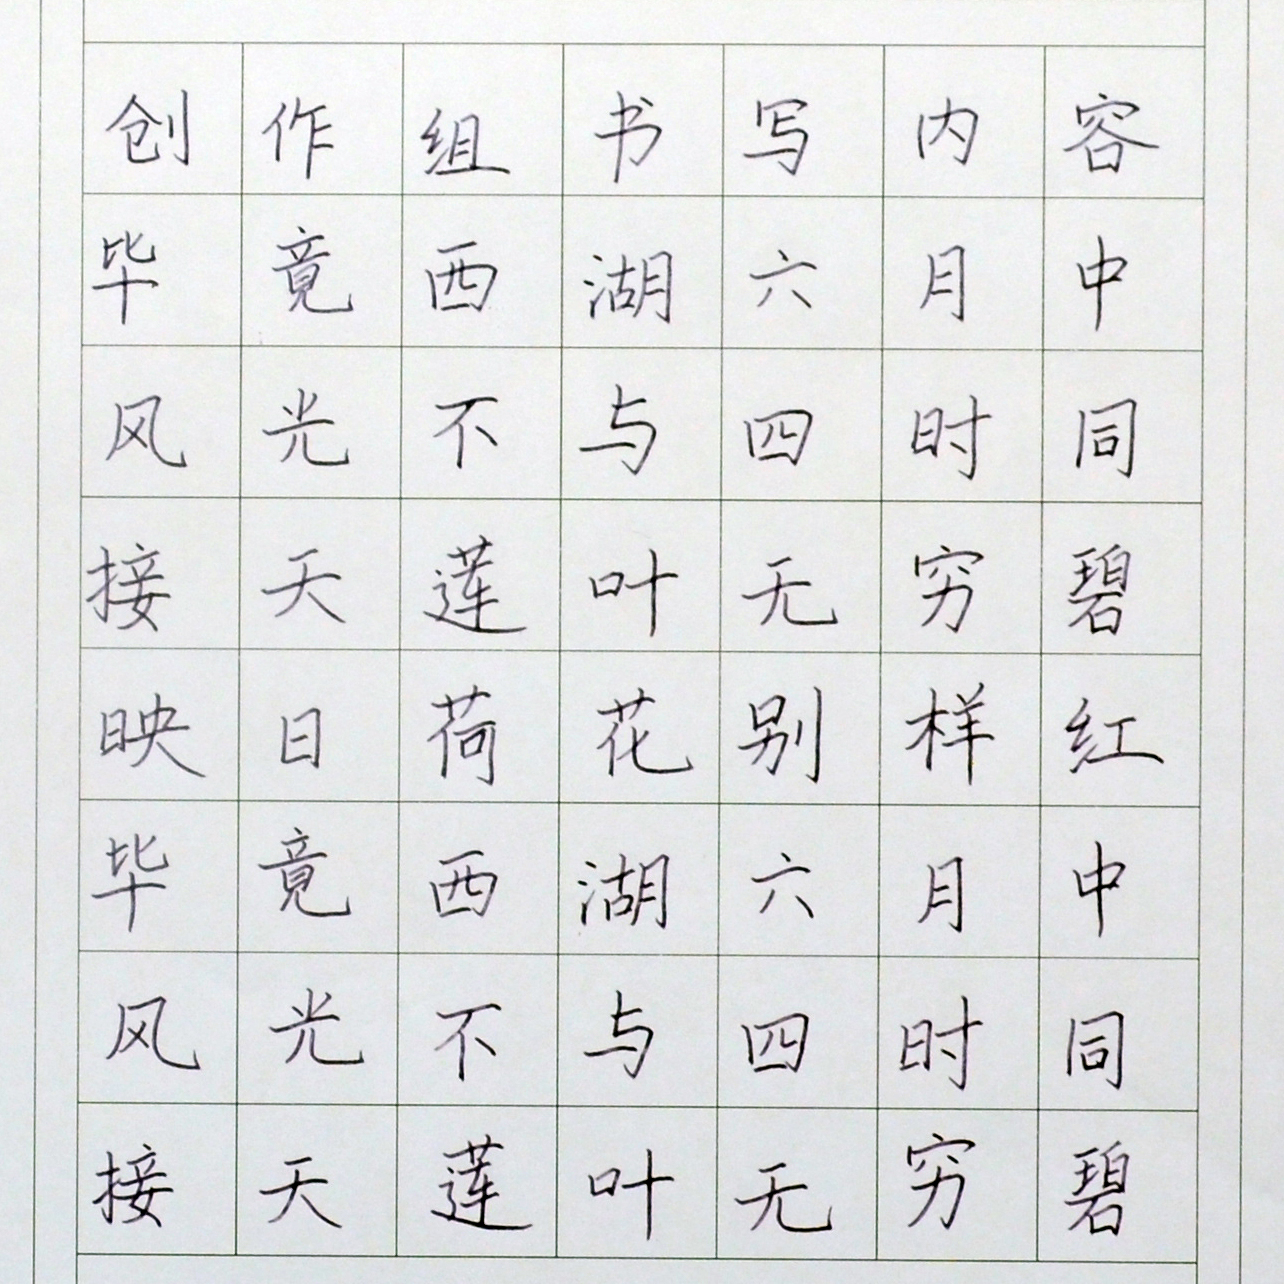 创作组书写内容
毕竟西湖六月中
风光不与四时同
接天莲叶无穷碧
映日荷花别样红
毕竟西湖六月中
风光不与四时同
接天莲叶无穷碧